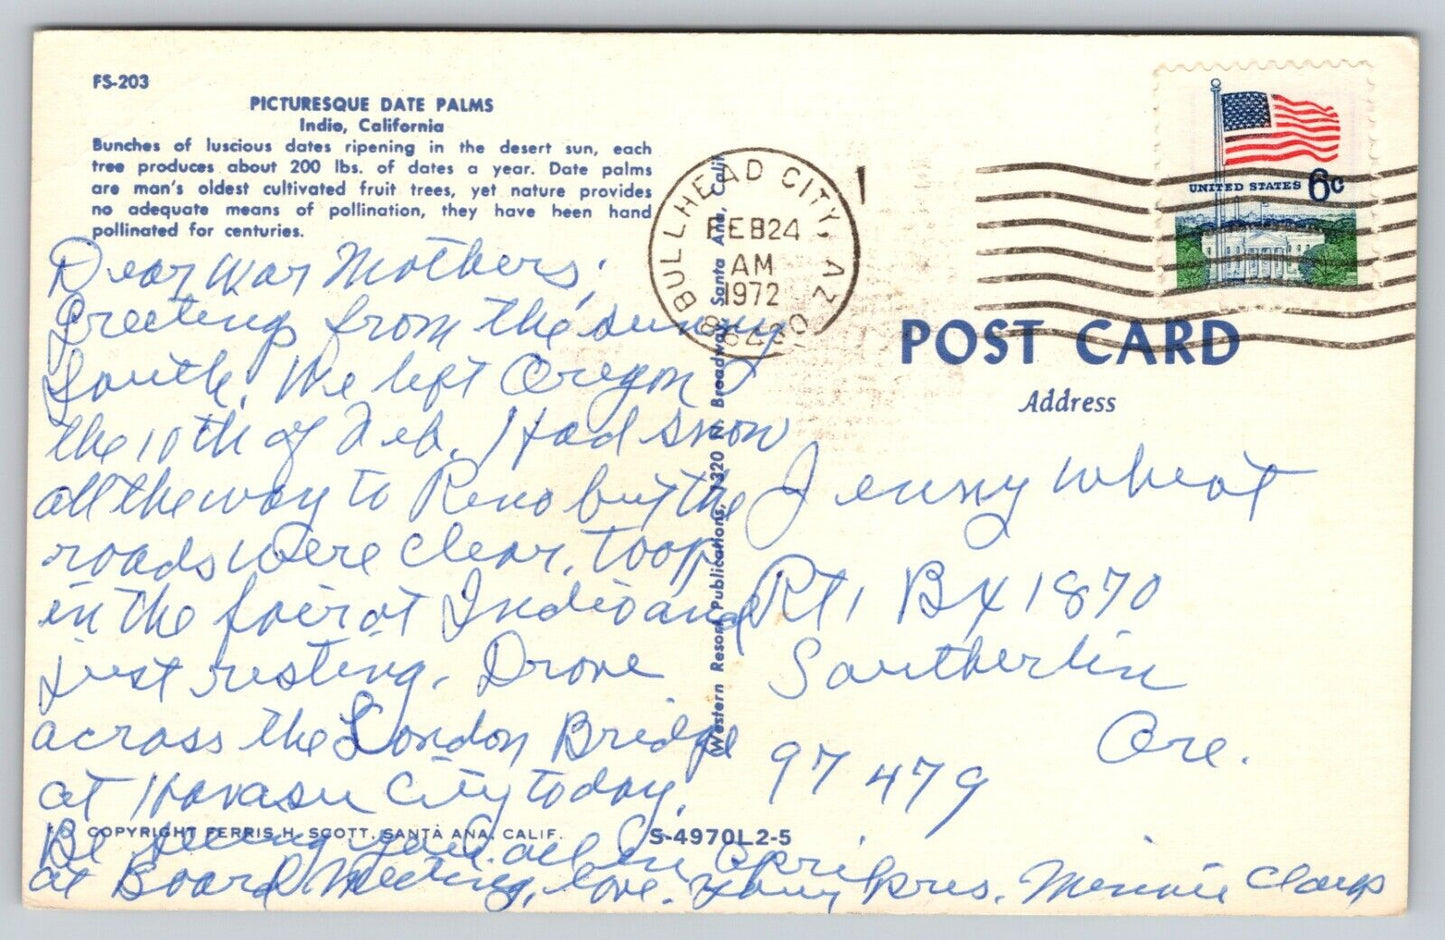 FS-203
PICTURESQUE DATE PALMS
Indio, California
Bunches of luscious dates ripening in the desert sun, each
tree produces about 200 lbs. of dates a year. Date palms
are man's oldest cultivated fruit trees, yet nature provides
no adequate means of pollination, they have been hand
pollinated for centuries.
Dear War Mothers;
Greetings from the sunny
South. We left Oregon
the 10th of Feb. Had snow
all the way to Reno but the
roads were clear. Took
in the fair at Indio and
just resting. Drove
across the London Bridge
at Havasu City today.
Be seeing you all in April
at Board Meeting, love. Your pres. Minnie
© COPYRIGHT FERRIS H. SCOTT, SANTA ANA, CALIF.
S-4970L2-5
Western Resort Publications, 1320 N. Broadway, Santa Ana, Calif
BULLHEAD CITY, AZ
FEB 24
AM
1972
UNITED STATES 6c
POST CARD
Address
Jenny Wheat
Rt 1 Bx 1870
Sutherlin
Ore.
97479